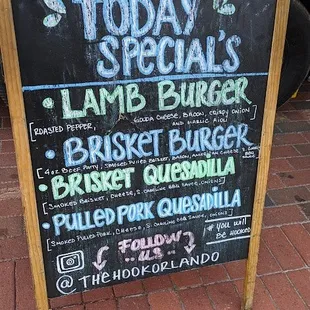 TODAY
SPECIAL'S
• LAMB BURGER
[ROASTED PEPPER, GOUDA CHEESE, BACON, CRISPY ONION
AND GARLIC AIOLI]
• BRISKET BURGER
[4 OZ BEEF PATTY, SMOKED WITH BRISKET, BACON, AMERICAN CHEESE
• BRISKET QUESADILLA
[SMOKED BRISKET, CHEESE, S. CAROLINA BBQ SAUCE, ONIONS]
• PULLED PORK QUESADILLA
[SMOKED PULLED PORK, CHEESE, S. CAROLINA BBQ SAUCE, ONION]
FOLLOW
US
# YOU WILL
BE HOOKED
@ THEHOOKORLANDO